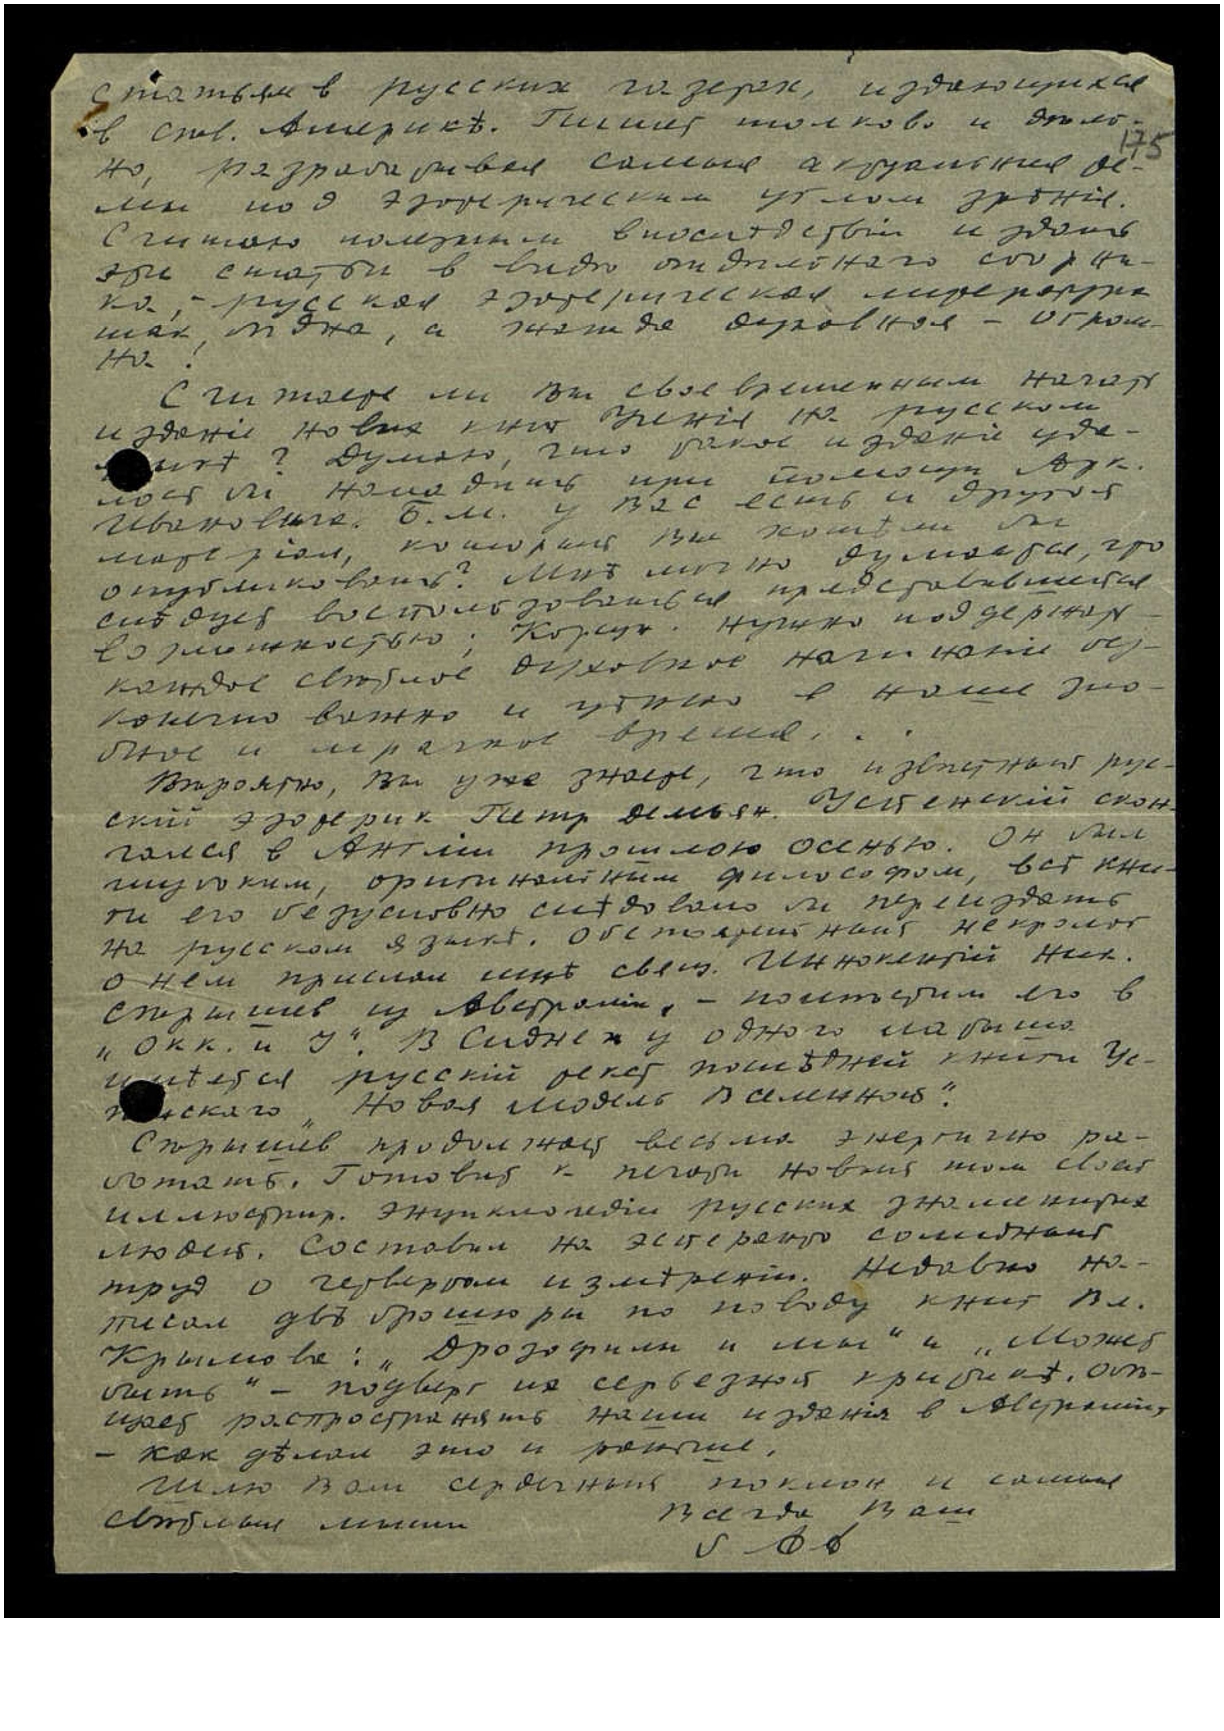 статьям в русских газетах, издающихся
175
в сѣв. Америкѣ. Пишет толково и дѣль-
но, разрабатывая самыя актуальныя те-
мы под эзотерическим углом зрѣнія.
Считаю полезным впослѣдствіи издать
эти статьи в видѣ отдѣльнаго сборни-
ка, – русская эзотерическая литература
так бѣдна, а жажда духовная – огром-
на!
Считаете ли Вы своевременным начать
изданіе новых книг Ученія на русском
языкѣ? Думаю, что такое изданіе уда-
лось бы наладить при помощи Арк.
Ивановича. Б.м. у Вас есть и другой
матеріал, который Вы хотѣли бы
опубликовать? Мнѣ лично думается, что
слѣдует воспользоваться представившейся
возможностью; нужно поддержать
каждое свѣтлое духовное начинаніе без-
конечно важно и цѣнно в наше зло-
бное и мрачное время...
Вѣроятно, Вы уже знаете, что извѣстный рус-
скій эзотерик Петр Демьян. Успенскій скон-
чался в Англіи прошлою осенью. Он был
глубоким, оригинальным философом, всѣ кни-
ги его безусловно слѣдовало бы переиздать
на русском языкѣ. Обстоятельный некролог
о нем прислал мнѣ свящ. Иннокентій Ник.
Сѣрышев из Австраліи, – помѣстим его в
„Окк. и I“. В Сиднеѣ у одного латыша
имѣется русскій текст послѣдней книги Ус-
пенскаго „Новая Модель Вселенной“.
Сѣрышев продолжает весьма энергично ра-
ботать. Готовит к печати новый том своей
иллюстрир. энциклопедіи русских знаменитых
людей. Составил на эсперанто солидный
труд о четвертом измѣреніи. Недавно на-
писал двѣ брошюры по поводу книг Вл.
Крымова: „Дрозофилы и мы“ и „Может
быть“ – подверг их серьезной критикѣ. Обѣ-
щает распространять наши изданія в Австраліи,
– как дѣлал это и раньше.
Шлю Вам сердечный поклон и самыя
свѣтлыя мысли
Всегда Ваш